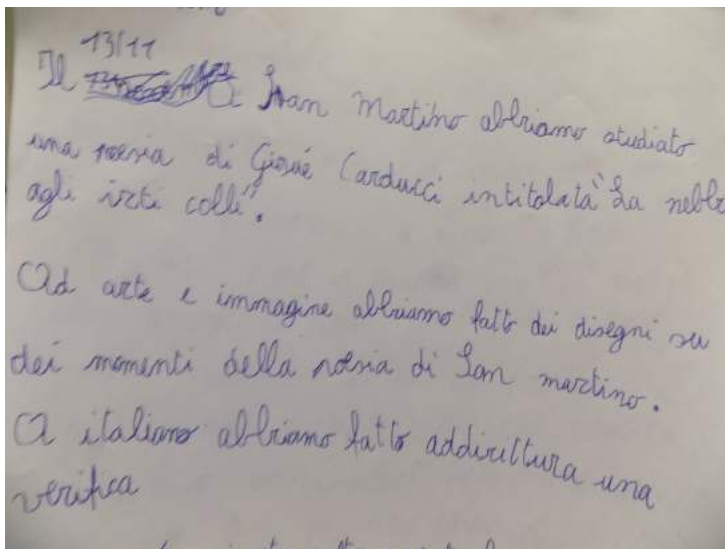 13/11
Il A San Martino abbiamo studiato
una poesia di Giosuè Carducci intitolata "La nebb
agli irti colli".
Ad arte e immagine abbiamo fatto dei disegni su
dei momenti della poesia di San martino.
A italiano abbiamo fatto addirittura una
verifica